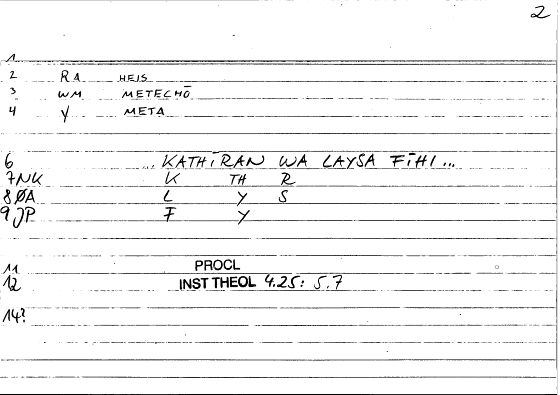 2
1
2 RA HEIS
3 WM METECHŌ
4 Y META
6 ... KATHĪRAN WA LAYSA FĪHI ...
7NK K TH R
8ØA L Y S
9JP F Y
11 PROCL
12 INST THEOL 4.25: 5.7
14?